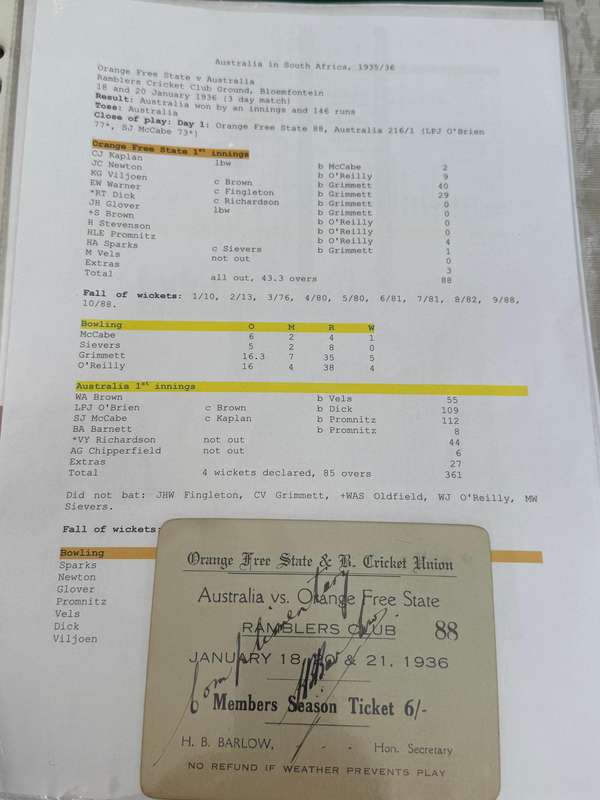 Australia in South Africa, 1935/36
Orange Free State v Australia
Ramblers Cricket Club Ground, Bloemfontein
18 and 20 January 1936 (3 day match)
Result: Australia won by an innings and 146 runs
Toss: Australia
Close of play: Day 1: Orange Free State 88, Australia 216/1 (LPJ O'Brien
77*, SJ McCabe 73*)
Orange Free State 1st innings
CJ Kaplan lbw b McCabe 2
JC Newton b O'Reilly 9
KG Viljoen c Brown b Grimmett 40
EW Warner c Fingleton b Grimmett 29
*RT Dick c Richardson b Grimmett 0
JH Glover lbw b Grimmett 0
+S Brown b O'Reilly 0
H Stevenson b O'Reilly 0
HLE Promnitz b O'Reilly 4
HA Sparks c Sievers b Grimmett 1
M Vels not out 0
Extras 3
Total all out, 43.3 overs 88
Fall of wickets: 1/10, 2/13, 3/76, 4/80, 5/80, 6/81, 7/81, 8/82, 9/88,
10/88.
Bowling O M R W
McCabe 6 2 4 1
Sievers 5 2 8 0
Grimmett 16.3 7 35 5
O'Reilly 16 4 38 4
Australia 1st innings
WA Brown b Vels 55
LPJ O'Brien c Brown b Dick 109
SJ McCabe c Kaplan b Promnitz 112
BA Barnett b Promnitz 8
*VY Richardson not out 44
AG Chipperfield not out 6
Extras 27
Total 4 wickets declared, 85 overs 361
Did not bat: JHW Fingleton, CV Grimmett, +WAS Oldfield, WJ O'Reilly, MW
Sievers.
Fall of wickets:
Bowling
Sparks
Newton
Glover
Promnitz
Vels
Dick
Viljoen
Orange Free State & B. Cricket Union
Australia vs. Orange Free State
RAMBLERS CLUB 88
JANUARY 18, 20 & 21, 1936
Members Season Ticket 6/-
H. B. BARLOW, - - - Hon. Secretary
NO REFUND IF WEATHER PREVENTS PLAY
Complimentary